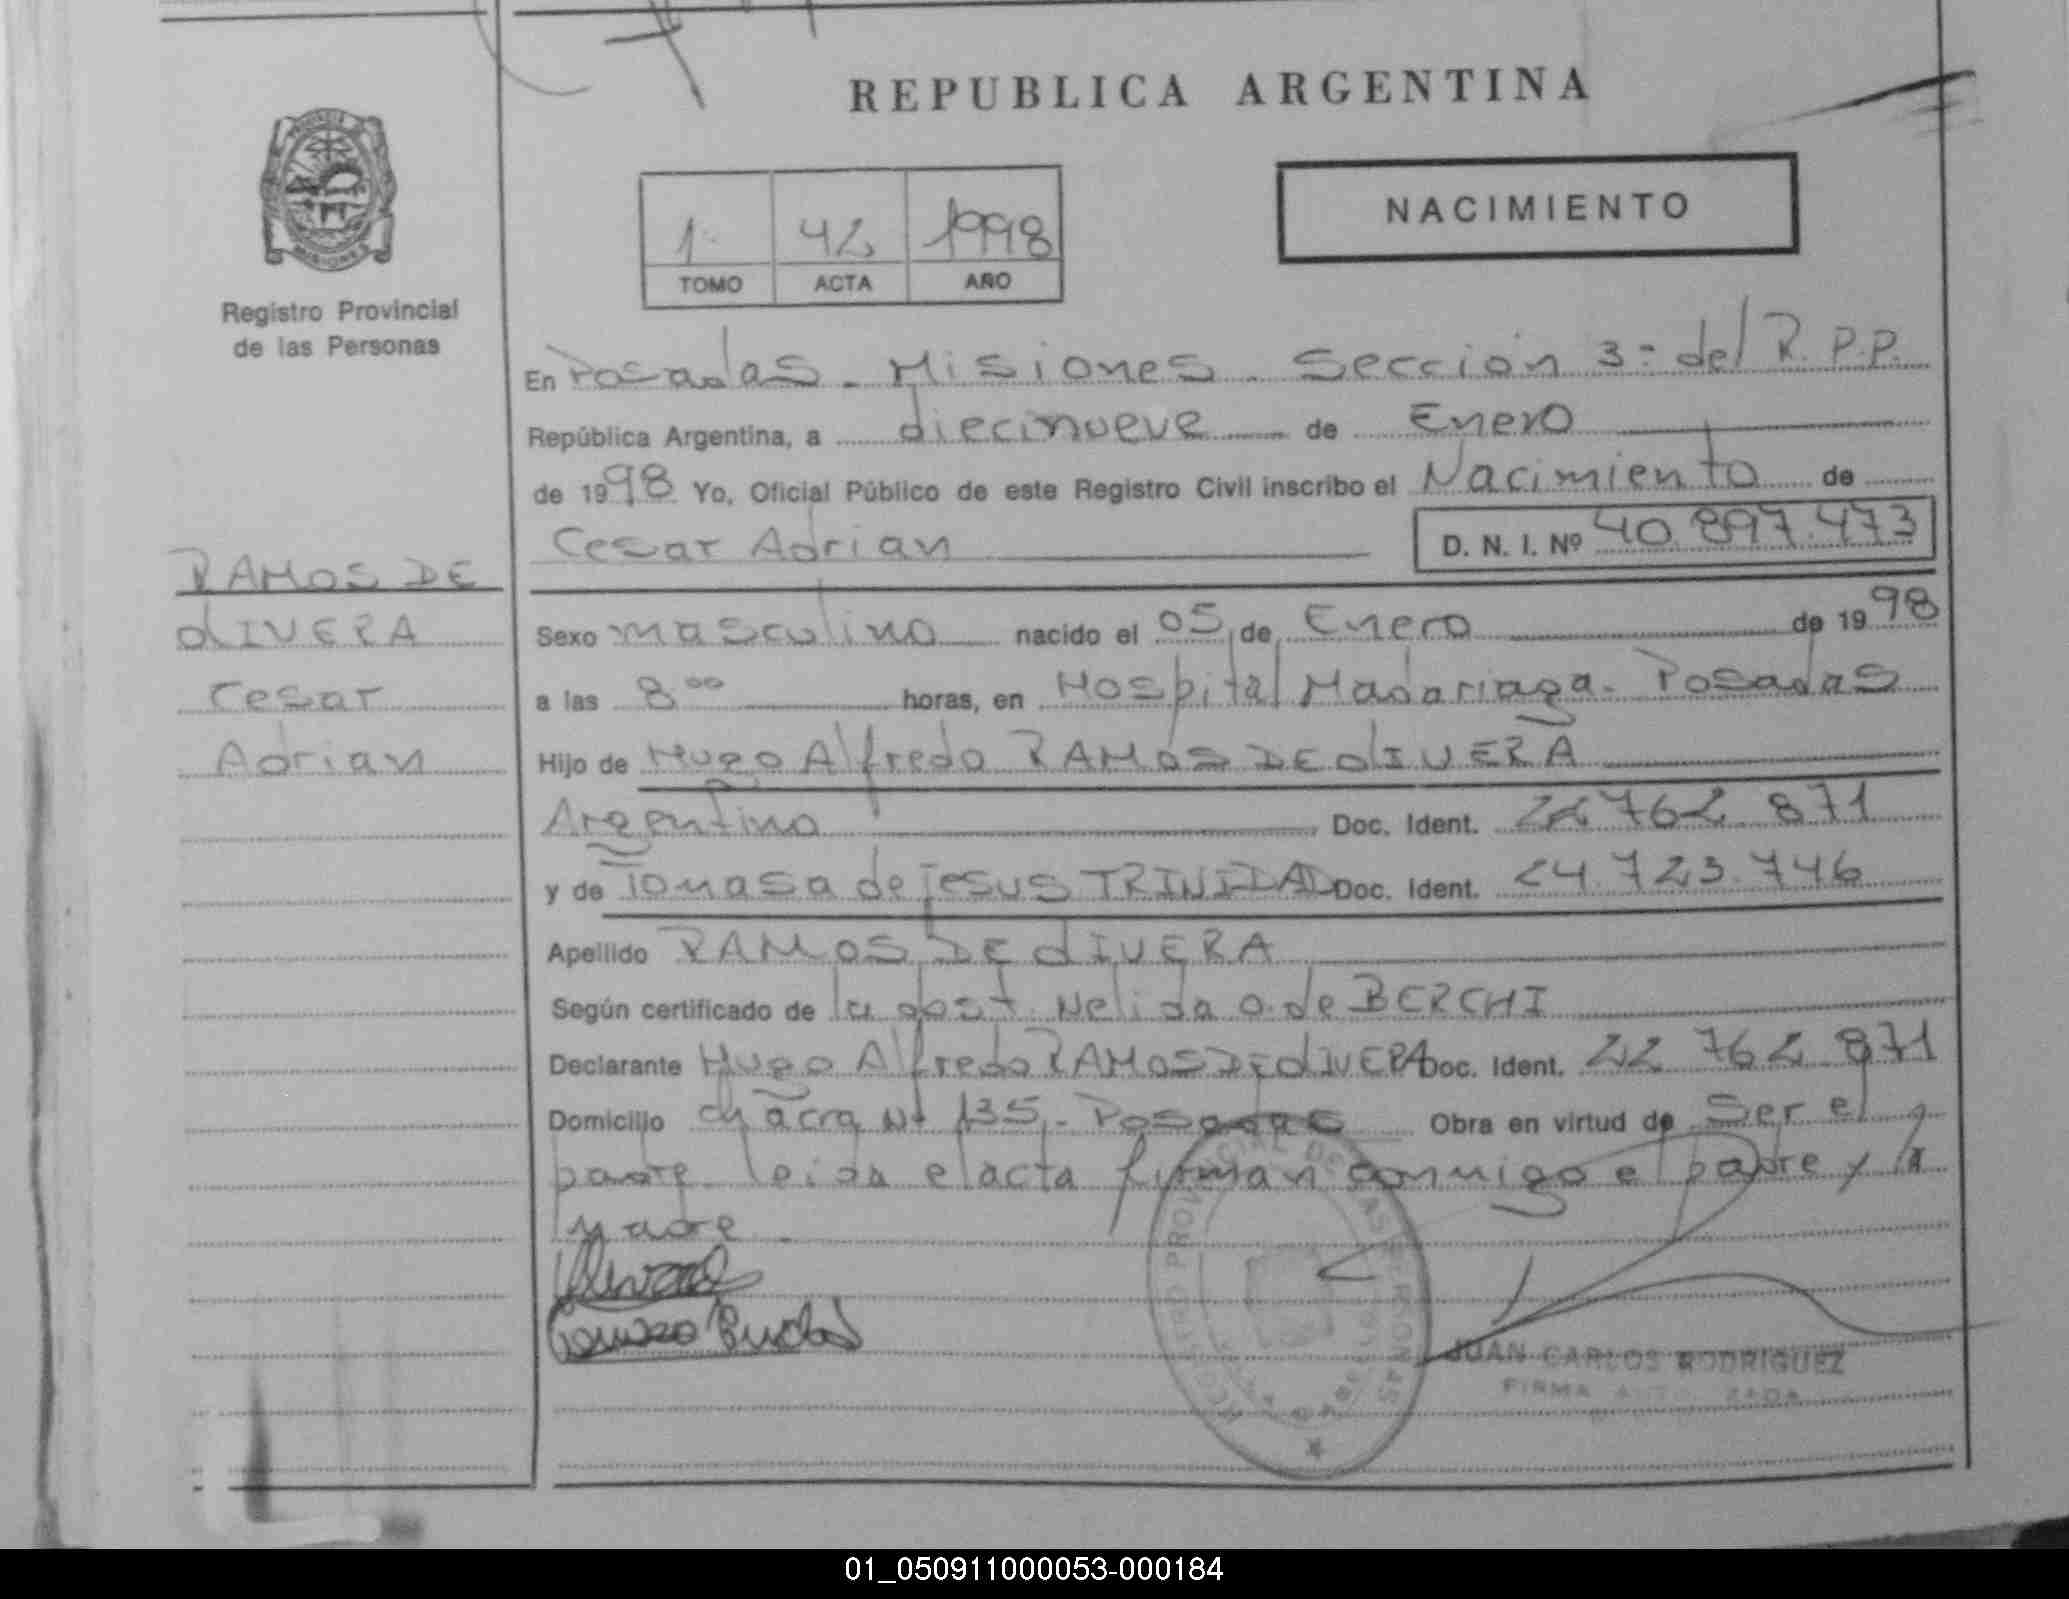 REPUBLICA ARGENTINA
NACIMIENTO
1- 42 1998
TOMO ACTA AÑO
Registro Provincial
de las Personas
En Posadas - Misiones - Sección 3= del R.P.P.
República Argentina, a diecinueve de Enero
de 1998 Yo, Oficial Público de este Registro Civil inscribo el Nacimiento de
Cesar Adrian D. N. I. Nº 40.897.473
RAMOS DE
OLIVERA
Cesar
Adrian
Sexo masculino nacido el 05 de Enero de 1998
a las 8 00 horas, en Hospital Madariaga - Posadas
Hijo de Hugo Alfredo RAMOS DE OLIVERA
Argentino Doc. Ident. 22 762 871
y de Tomasa de Jesus TRINIDAD Doc. Ident. 24.723.746
Apellido RAMOS DE OLIVERA
Según certificado de la obst. Nelida O. de BERCHI
Declarante Hugo Alfredo RAMOS DE OLIVERA Doc. Ident. 22 762 871
Domicilio chacra Nº 135 - Posadas Obra en virtud de Ser el
padre leida el acta firman conmigo el padre y la
madre.
REGISTRO PROVINCIAL DE LAS PERSONAS
JUAN CARLOS RODRIGUEZ
FIRMA AUTORIZADA
01_050911000053-000184